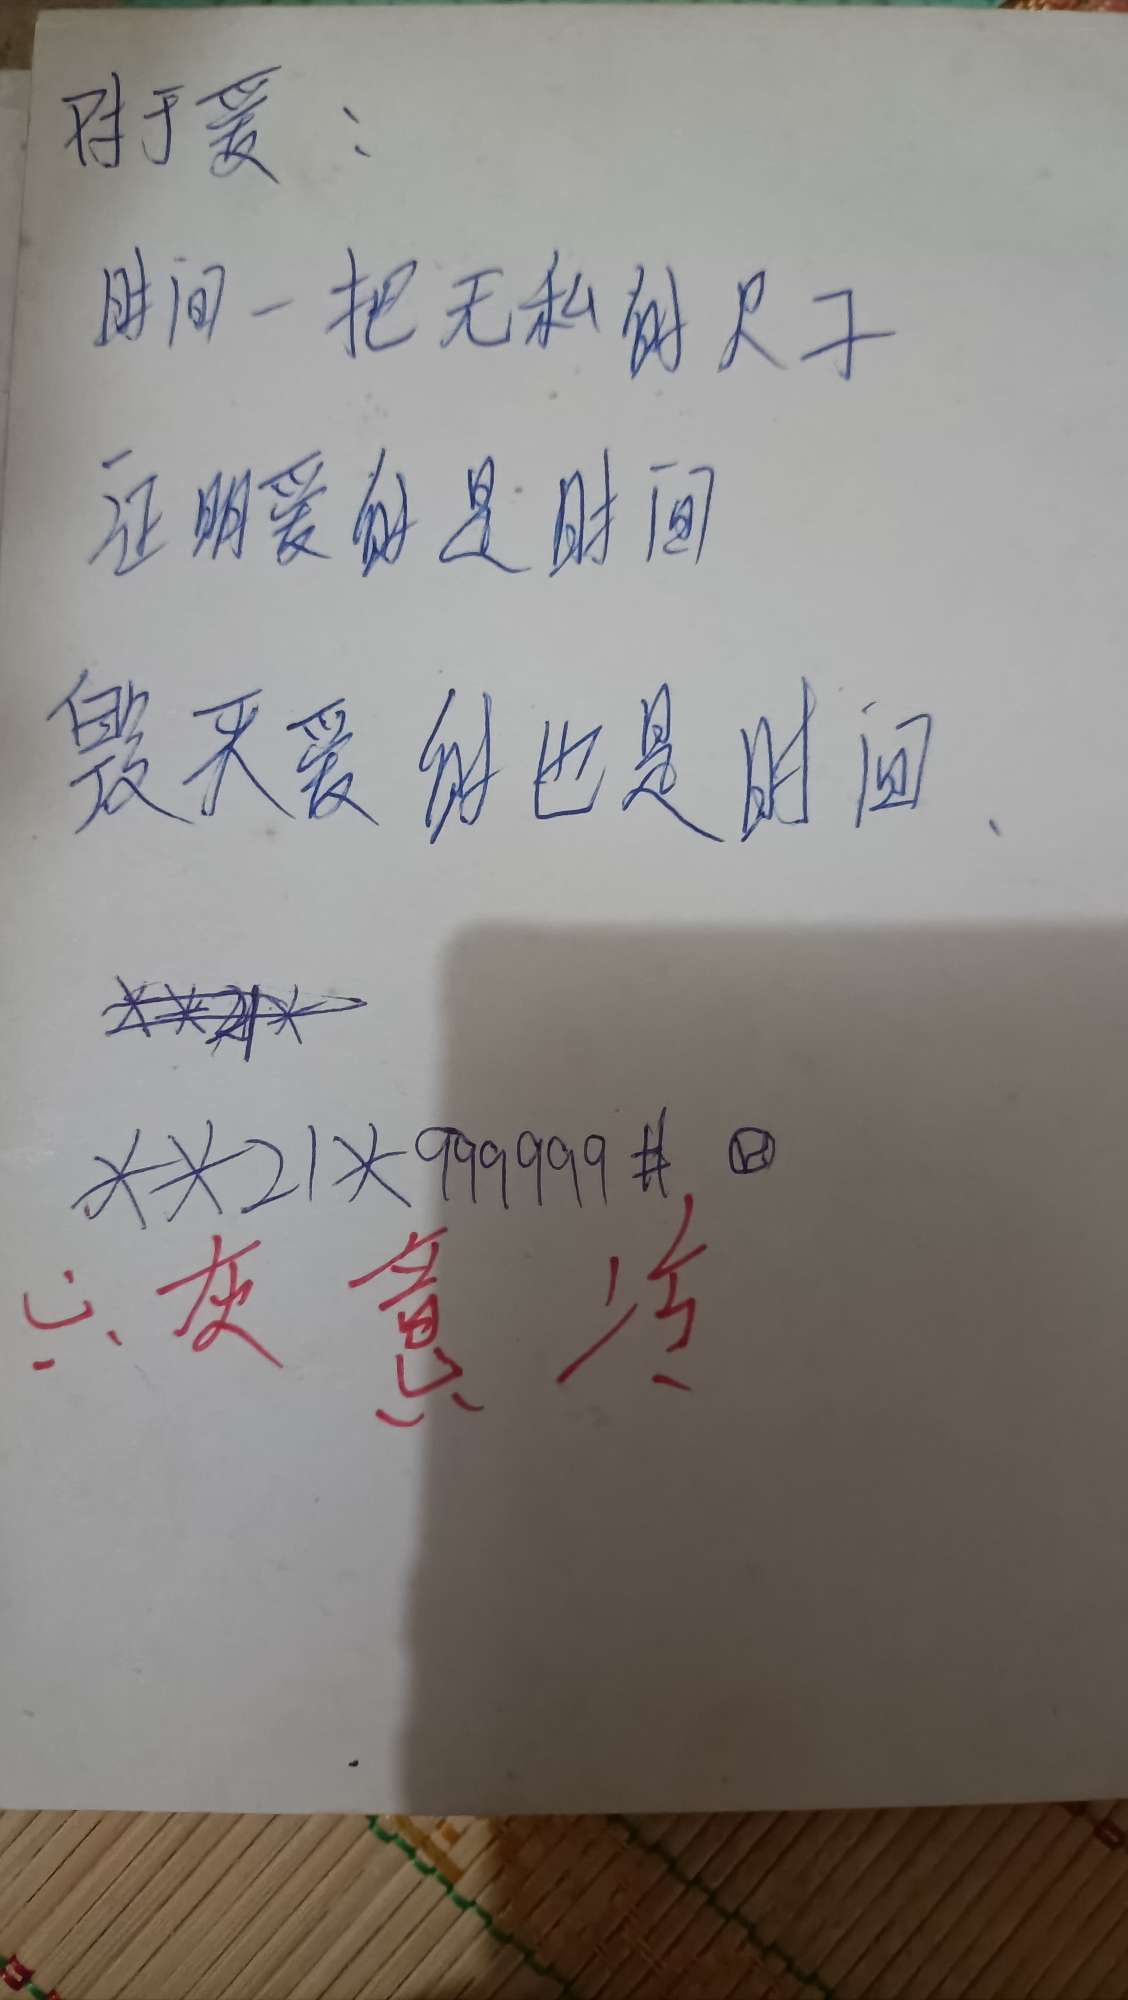 对于爱：
时间一把无私的尺子
证明爱的是时间
毁灭爱的也是时间、
**21*999999#
心灰意冷